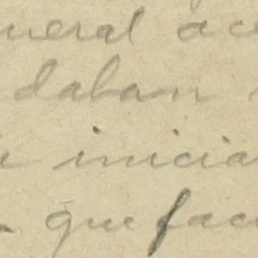 neral ace
daban
i inicia
que fac